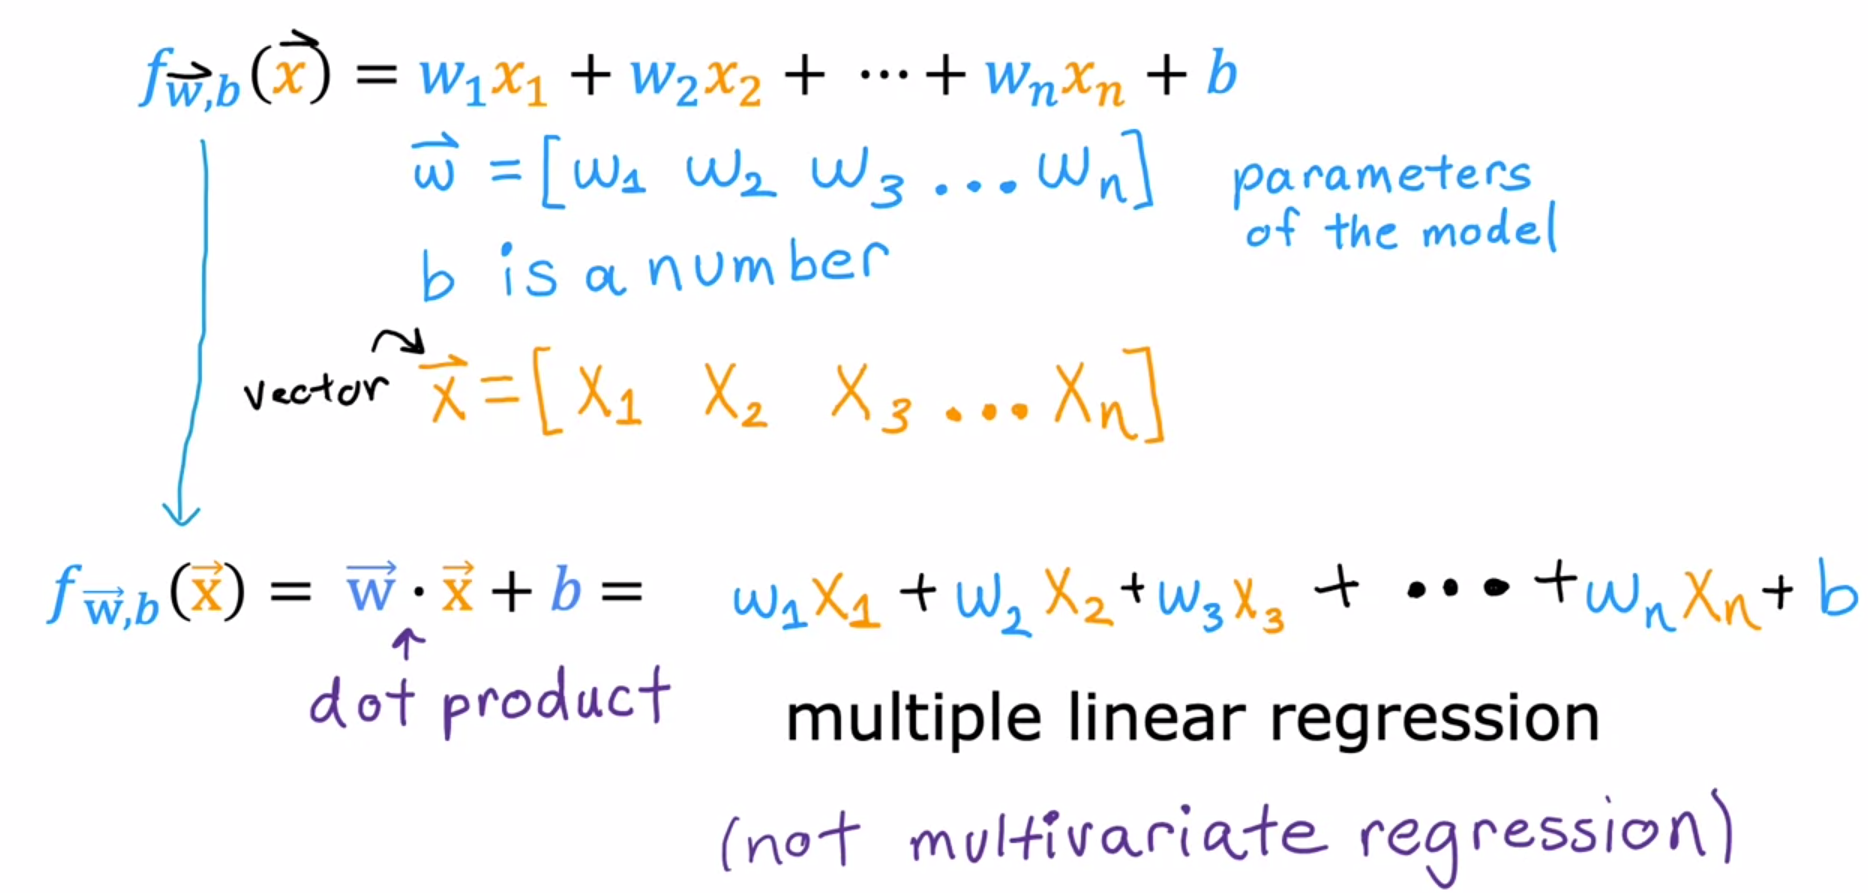 f_{\vec{w},b}(\vec{x}) = w₁x₁ + w₂x₂ + ⋯ + wₙxₙ + b
\vec{w} = [w₁ w₂ w₃ ... wₙ]
parameters
of the model
b is a number
vector \vec{x} = [x₁ x₂ x₃ ... xₙ]
f_{\vec{w},b}(\vec{x}) = \vec{w} · \vec{x} + b = w₁x₁ + w₂x₂ + w₃x₃ + ••• + wₙxₙ + b
dot product
multiple linear regression
(not multivariate regression)